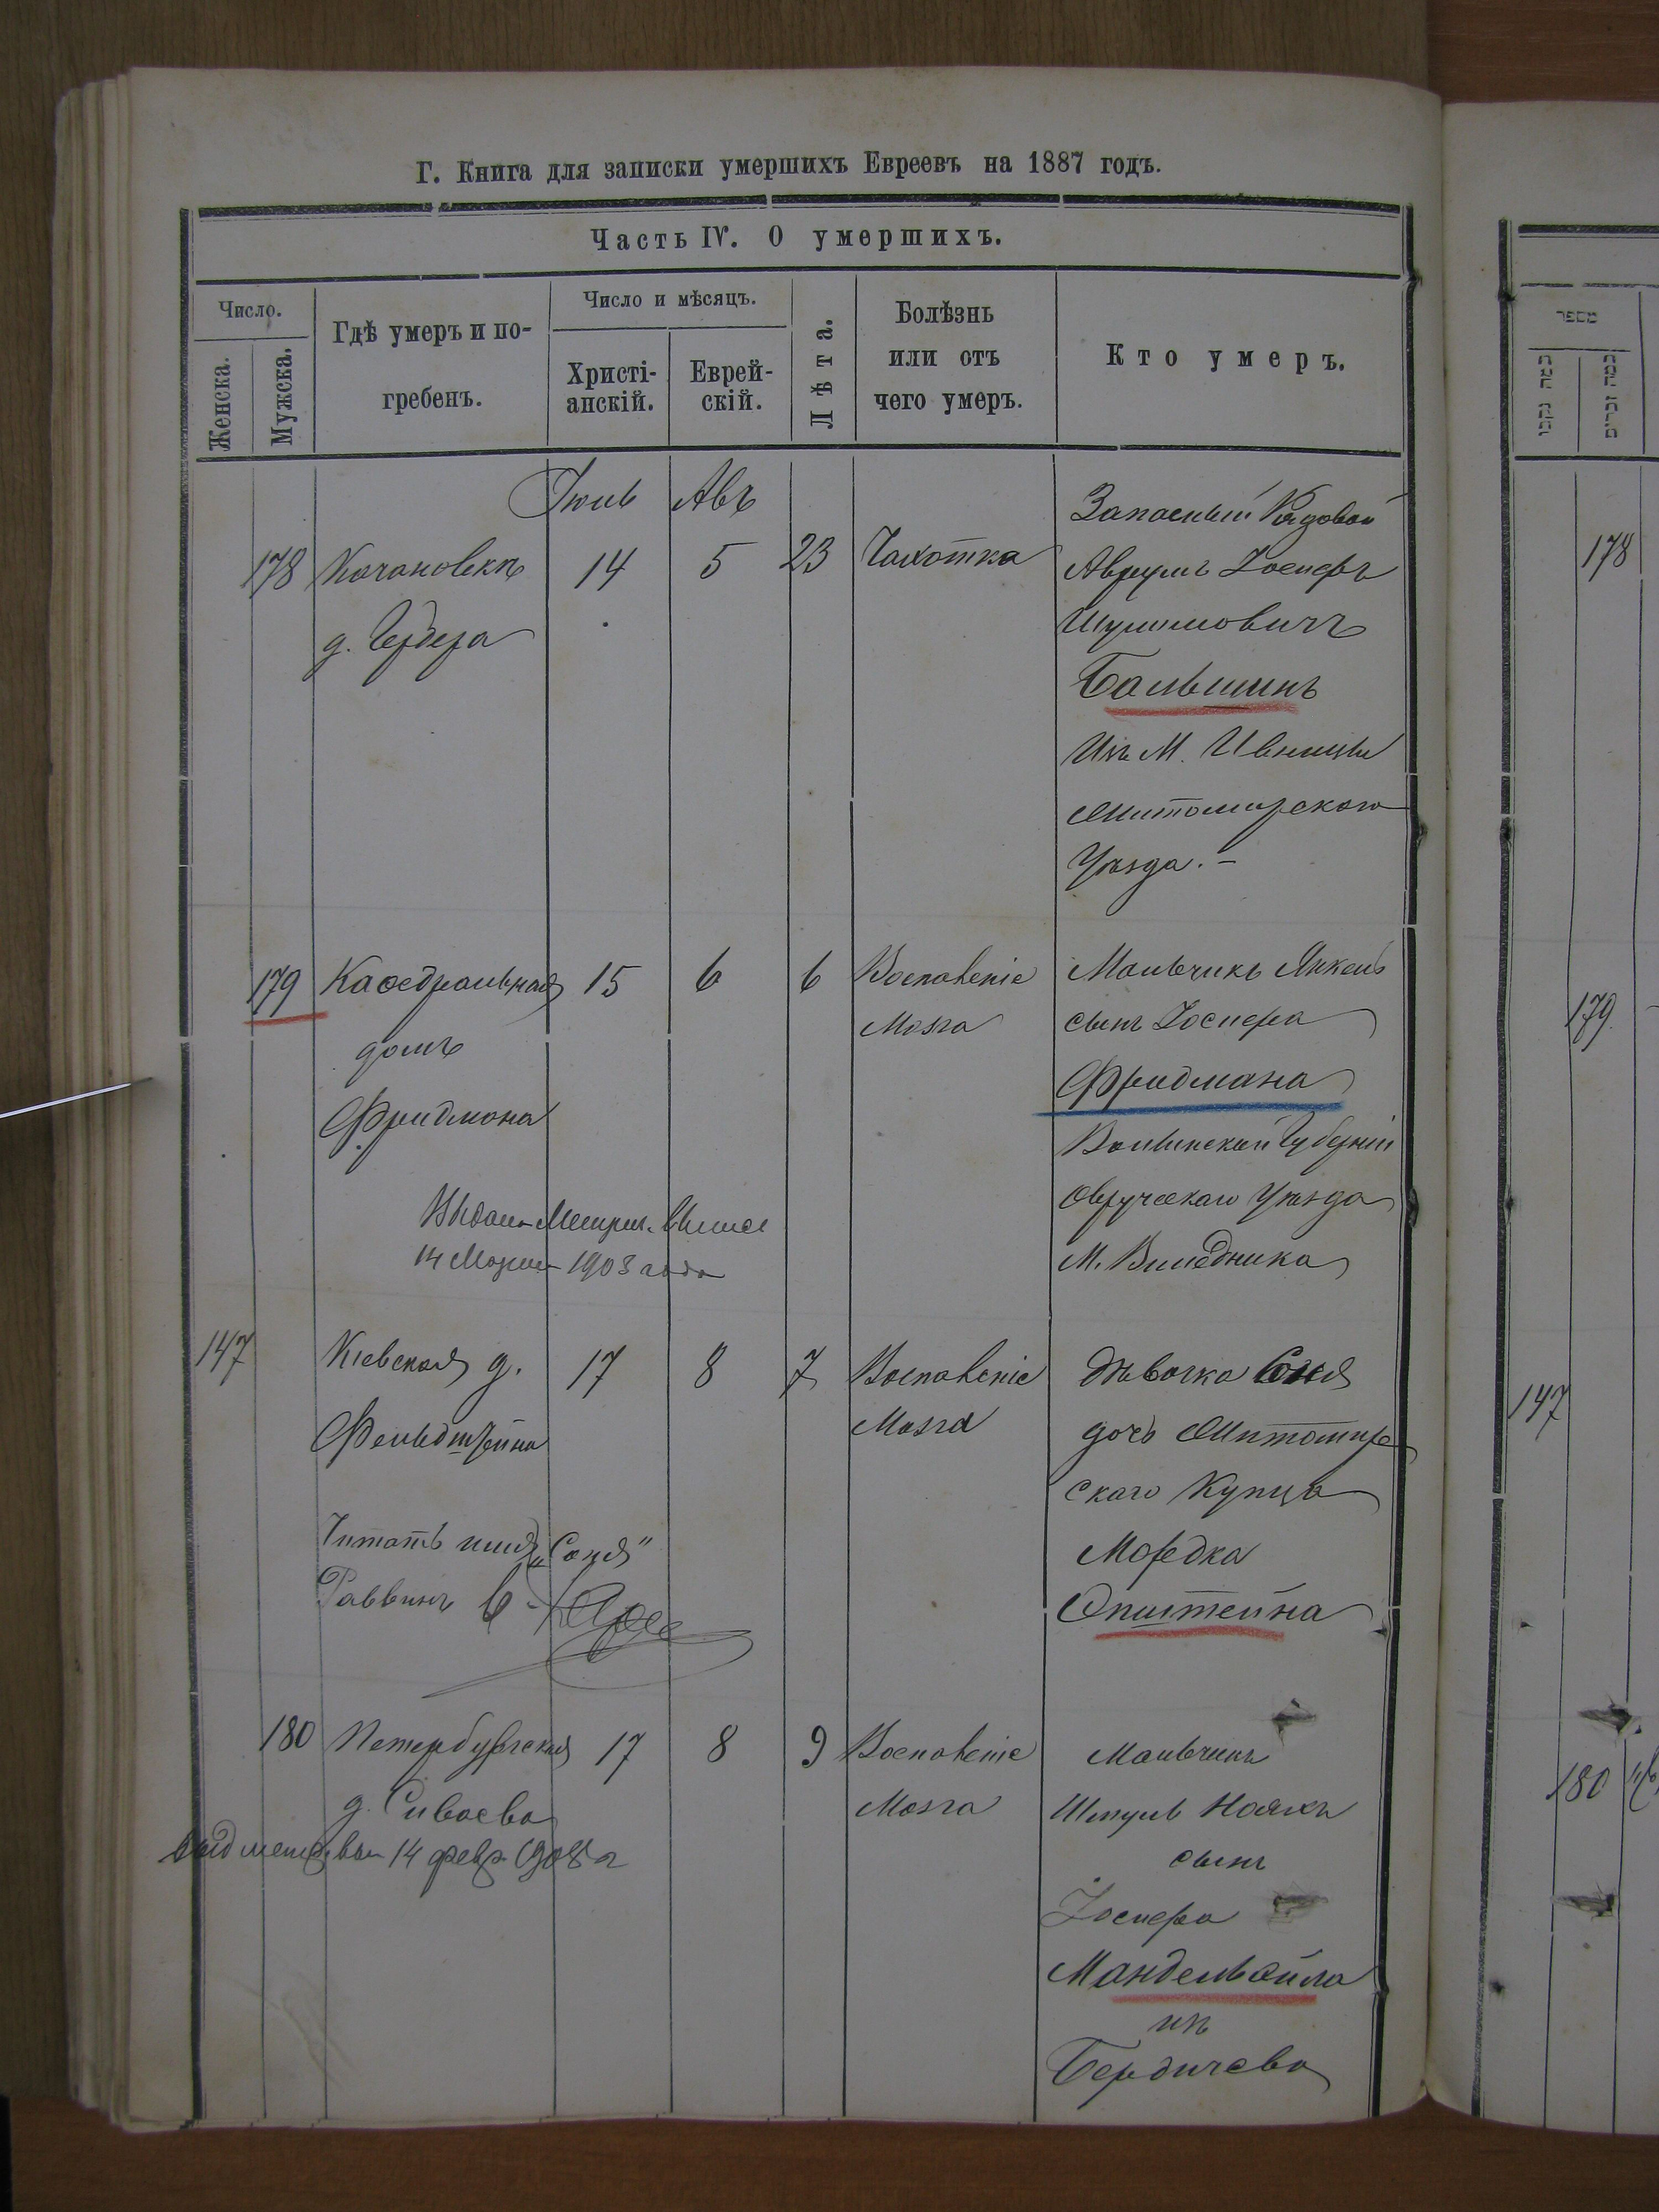 Г. Книга для записки умершихъ Евреевъ на 1887 годъ.
Часть IV. О умершихъ.
Число.
Женска.
Мужска.
Гдѣ умеръ и по-
гребенъ.
Число и мѣсяцъ.
Христі-
анскій.
Еврей-
скій.
Лѣта.
Болѣзнь
или отъ
чего умеръ.
Кто умеръ.
מספר
Іюль Авъ
178 14 5 23 Чахотка
Запасный Рядовой
Аврумъ Іосперъ
Шулимовичъ
Бальшинъ
Изъ М. Ивницы
Житомирскаго
Уѣзда. -
179 Каѳедральная 15 6 6 Воспаленіе
домъ Мозга
Фридмана
Мальчикъ Янкель
сынъ Іоспера
Фридмана
Волынской Губерніи
Овручскаго Уѣзда
М. Виледника
14 1903 года
147 Кіевская д. 17 8 7 Воспаленіе
Фельдштейна Мозга
Дѣвочка Соня
дочь Житомир
скаго Купца
Мордка
Эпштейна
Читать имя „Соня"
Раввинъ
180 Петербургская 17 8 9 Воспаленіе
д. Сиваева Мозга
14 февр 1908 г
Мальчикъ
Шмуль
сынъ
Іоспера
Мандельбойма
изъ
Бердичева
178
179
147
180